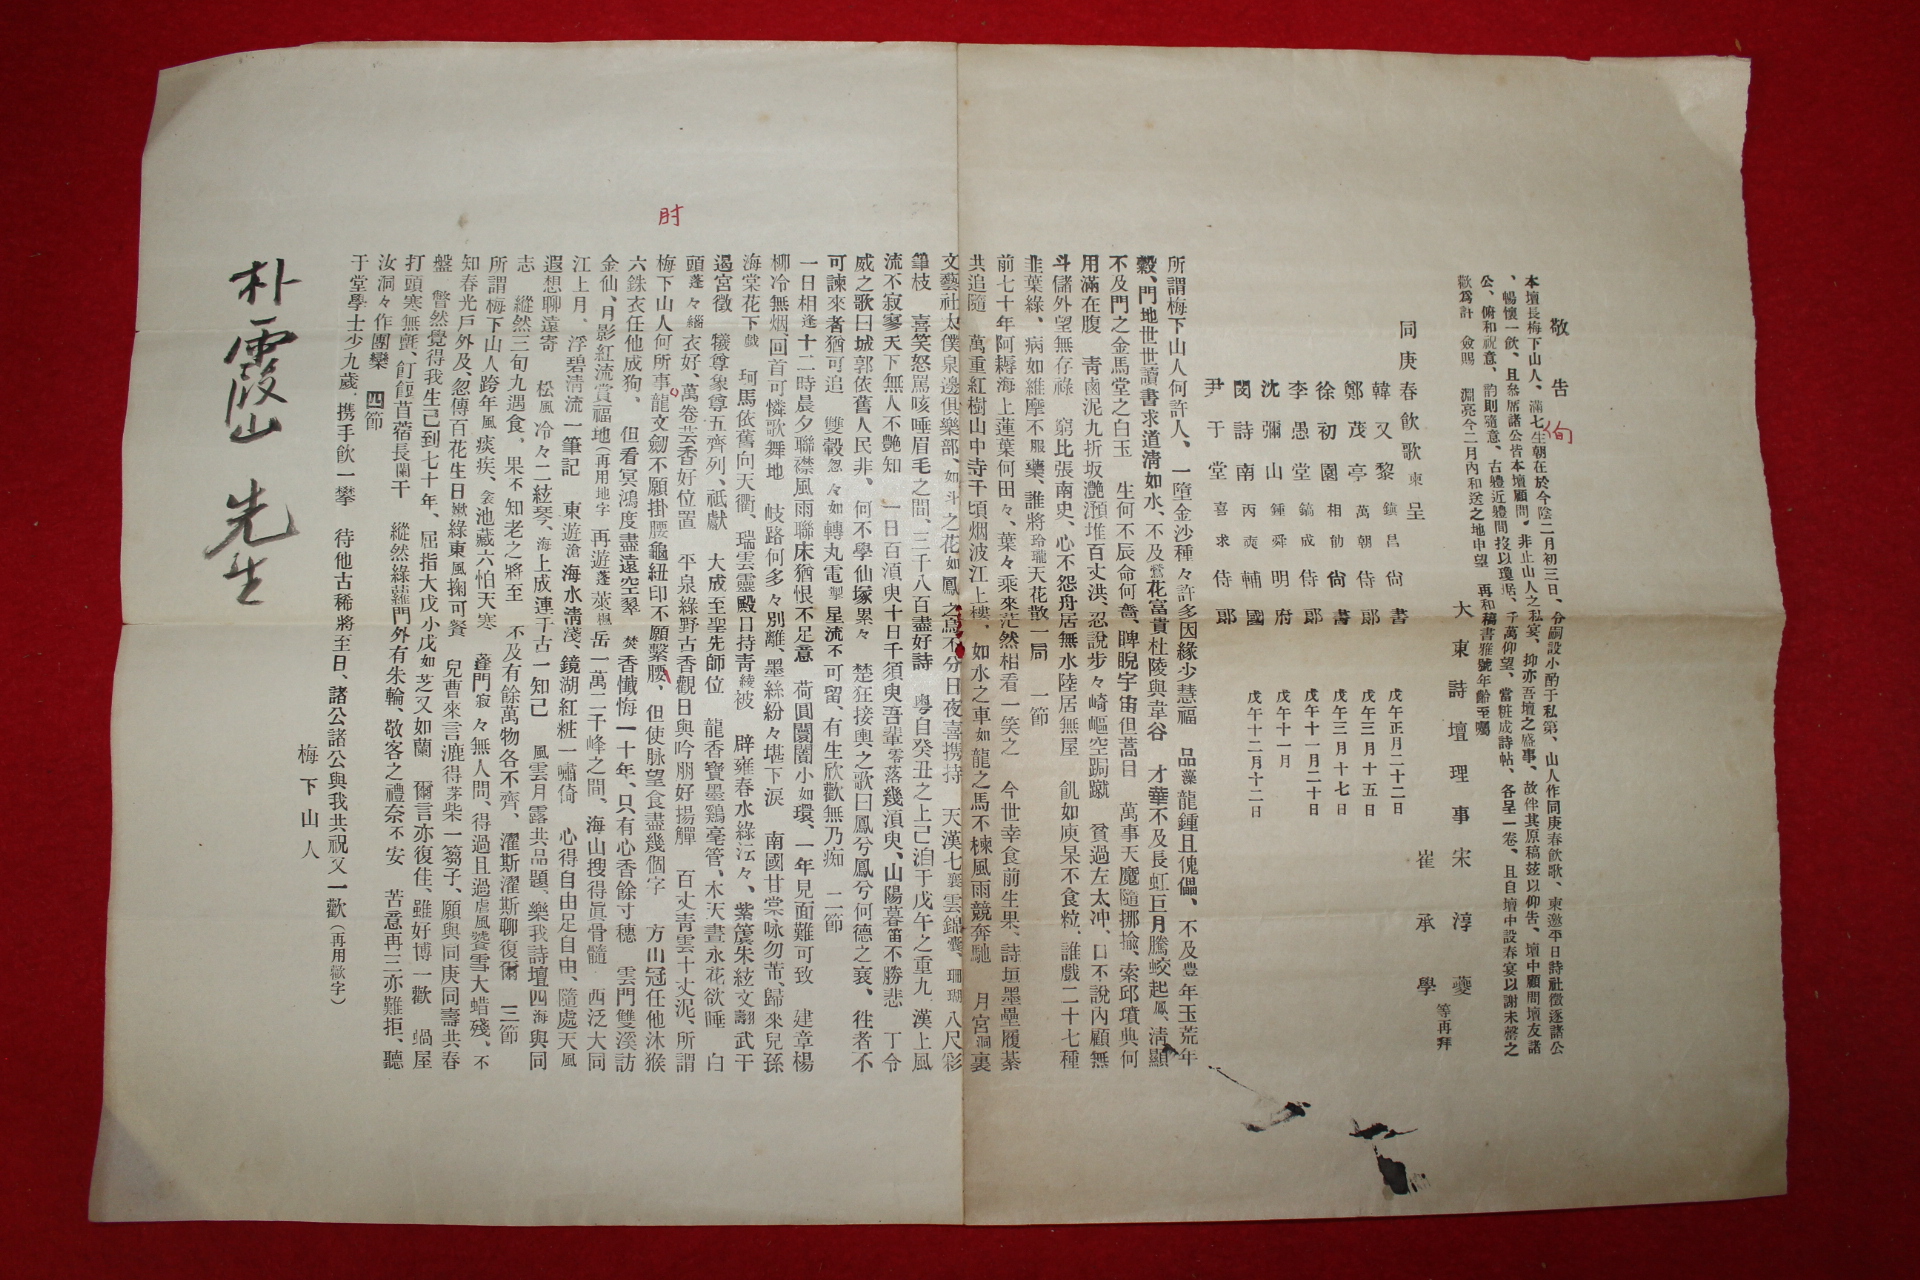 敬告
本壇長梅下山人、滿七生朝在於今陰二月初三日、分嗣設小酌于私第、山人作同庚春飮歌、柬邀平日詩社徵逐諸公
、暢懷一飮、且叅席諸公皆本壇顧問、非止山人之私宴、抑亦吾壇之盛事、故伴其原稿玆以仰告、壇中顧問壇友諸
公、俯和祝意、韵則隨意、古軆近軆間投以瓊琚、千萬仰望、當粧成詩帖、各呈一卷、且自壇中設春宴以謝未罄之
歡爲計 僉賜 淵亮今二月內和送之地申望 再和稿書雅號年齡至囑
大東詩壇理事宋淳夔
崔承學
等再拜
同庚春飮歌柬呈
韓又黎 鎭昌 尙書 戊午正月二十二日
鄭茂亭 萬朝 侍郞 戊午三月十五日
徐初園 相勛 尙書 戊午三月十七日
李愚堂 鎬成 侍郞 戊午十一月二十日
沈彌山 鍾舜 明府 戊午十一月
閔詩南 丙奭 輔國 戊午十二月十二日
尹于堂 喜求 侍郞
所謂梅下山人何許人、一墮金沙種々許多因緣少慧福 品藻龍鍾且傀儡、不及豊年玉荒年
穀、門地世世讀書求道淸如水、不及鶯花富貴杜陵與韋谷 才華不及長虹巨月騰蛟起鳳、淸顯
不及門之金馬堂之白玉 生何不辰命何奮、睥睨宇宙但蒿目 萬事天魔隨挪揄、索邱墳典何
用滿在腹 靑鹵泥九折坂灔澦堆百丈洪、忍說步々崎嶇空跼蹴 貧過左太冲、口不說內顧無
斗儲外望無存祿 窮比張南史、心不怨舟居無水陸居無屋 飢如庾杲不食粒、誰戲二十七種
韭葉綠、病如維摩不服藥、誰將玲瓏天花散一局 一節
前七十年阿耨海上蓮葉何田々、葉々乘來茫然相看一笑之 今世幸食前生果、詩垣墨壘履綦
共追隨 萬重紅樹山中寺千頃烟波江上樓、如水之車如龍之馬不棟風雨競奔馳 月宮洞裏
文藝社太僕泉邊俱樂部、如斗之花如鳳之鳥不分日夜喜携持 天漢七襄雲錦囊、珊瑚八尺彩
筆枝 喜笑怒罵咳唾眉毛之間、三千八百盡好詩 粤自癸丑之上己洎于戊午之重九、漢上風
流不寂寥天下無人不艶知 一日百湏臾十日千須臾吾輩零落幾湏臾、山陽暮笛不勝悲 丁令
威之歌曰城郭依舊人民非、何不學仙塚累々 楚狂接輿之歌曰鳳兮鳳兮何德之衰、徃者不
可諫來者猶可追 雙轂忽々如轉丸電掣星流不可留、有生欣歡無乃痴 二節
一日相逢十二時晨夕聯襟風雨聯床猶恨不足意 荷圓闤闠小如環、一年見面難可致 建章楊
柳冷無烟、回首可憐歌舞地 岐路何多々別離、墨絲紛々堪下淚 南國甘棠咏勿莇、歸來兒孫
海棠花下戲 珂馬依舊向天衢、瑞雲靈殿日持靑綾被 辟雍春水綠沄々、紫簴朱絃文翿武干
遏宮徵 犧尊象尊五齊列、祗獻 大成至聖先師位 龍香寶墨鷄毫管、木天晝永花欲睡 白
頭蓬々緇衣好、萬卷芸香好位置 平泉綠野古香觀日與吟朋好揚觶 百丈靑雲十丈泥、所謂
梅下山人何所事龍文劒不願掛腰龜紐印不願繫腰、但使脉望食盡幾個字 方山冠任他沐猴
六銖衣任他成狗、 但看冥鴻度盡遠空翠 焚香懺悔一十年、只有心香餘寸穗 雲門雙溪訪
金仙、月影紅流賞福地(再用地字 再遊蓬萊楓岳一萬二千峰之間、海山搜得眞骨髓 西泛大同
江上月、浮碧淸流一筆記 東遊滄海水淸淺、鏡湖紅粧一嘯倚 心得自由足自由、隨處天風
遐想聊遠寄 松風冷々二絃琴、海上成連千古一知己 風雲月露共品題、樂我詩壇四海與同
志 縱然三旬九遇食、果不知老之將至 不及有餘萬物各不齊、濯斯濯斯聊復爾 三節
所謂梅下山人跨年風痰疾、衾池藏六怕天寒 蓬門寂々無人問、得過且過虐風饕雪大蜡殘、不
知春光戶外及、忽傳百花生日嫩綠東風掬可餐 兒曹來言漉得茅柴一蒭子、願與同庚同壽共春
盤 瞥然覺得我生己到七十年、屈指大戊小戊如芝又如蘭 爾言亦復佳、雖好博一歡 蝸屋
打頭寒無氈、飣餖苜蓿長闌干 縱然綠蘿門外有朱輪、敬客之禮奈不安 苦意再三亦難拒、聽
汝洞々作團欒 四節
于堂學士少九歲、携手飮一攀 待他古稀將至日、諸公諸公與我共祝又一歡(再用歡字)
梅下山人
朴霞山 先生
恂
肘